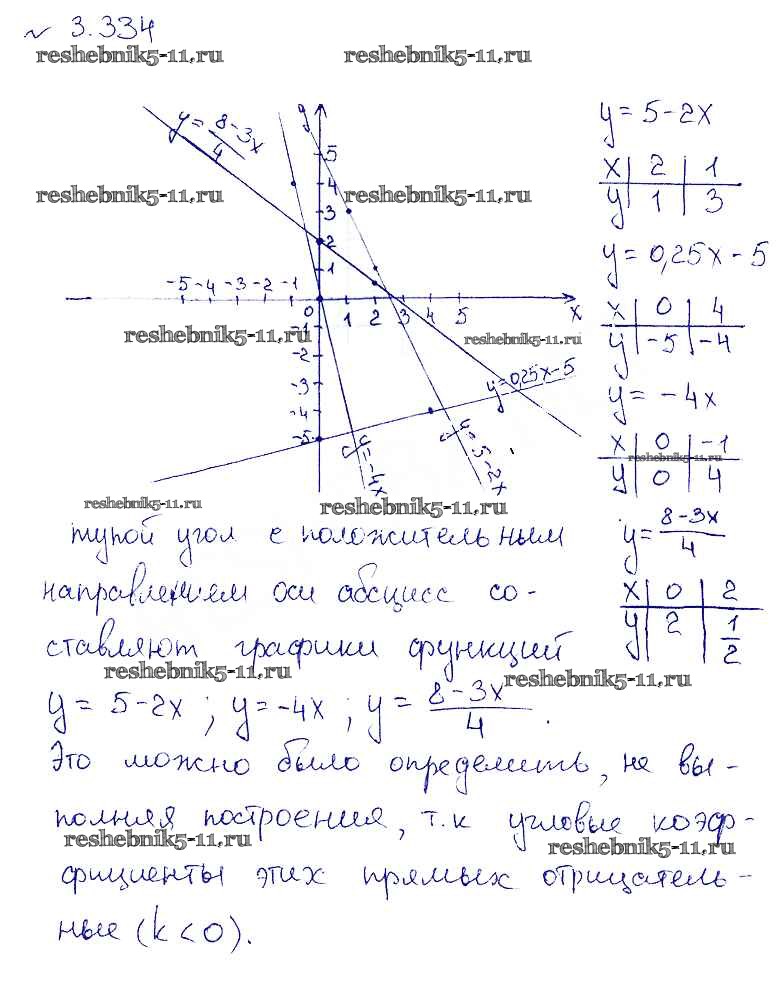 № 3.334
reshebnik5-11.ru reshebnik5-11.ru
y = 8-3x/4
y
5
4
3
2
1
-5 -4 -3 -2 -1 0 1 2 3 4 5 x
-1
-2
-3
-4
-5
y=0,25x-5
y=-4x
y=5-2x
y = 5-2x
x | 2 | 1
y | 1 | 3
reshebnik5-11.ru reshebnik5-11.ru
y = 0,25x - 5
x | 0 | 4
y | -5 | -4
reshebnik5-11.ru reshebnik5-11.ru
y = -4x
x | 0 | -1
y | 0 | 4
reshebnik5-11.ru
y = 8-3x/4
x | 0 | 2
y | 2 | 1/2
reshebnik5-11.ru reshebnik5-11.ru
тупой угол с положительным
направлением оси абсцисс со-
ставляют графики функций
reshebnik5-11.ru reshebnik5-11.ru
y = 5-2x ; y = -4x ; y = 8-3x/4 .
Это можно было определить, не вы-
полняя построения, т.к угловые коэф-
reshebnik5-11.ru reshebnik5-11.ru
фициенты этих прямых отрицатель-
ные (k < 0).